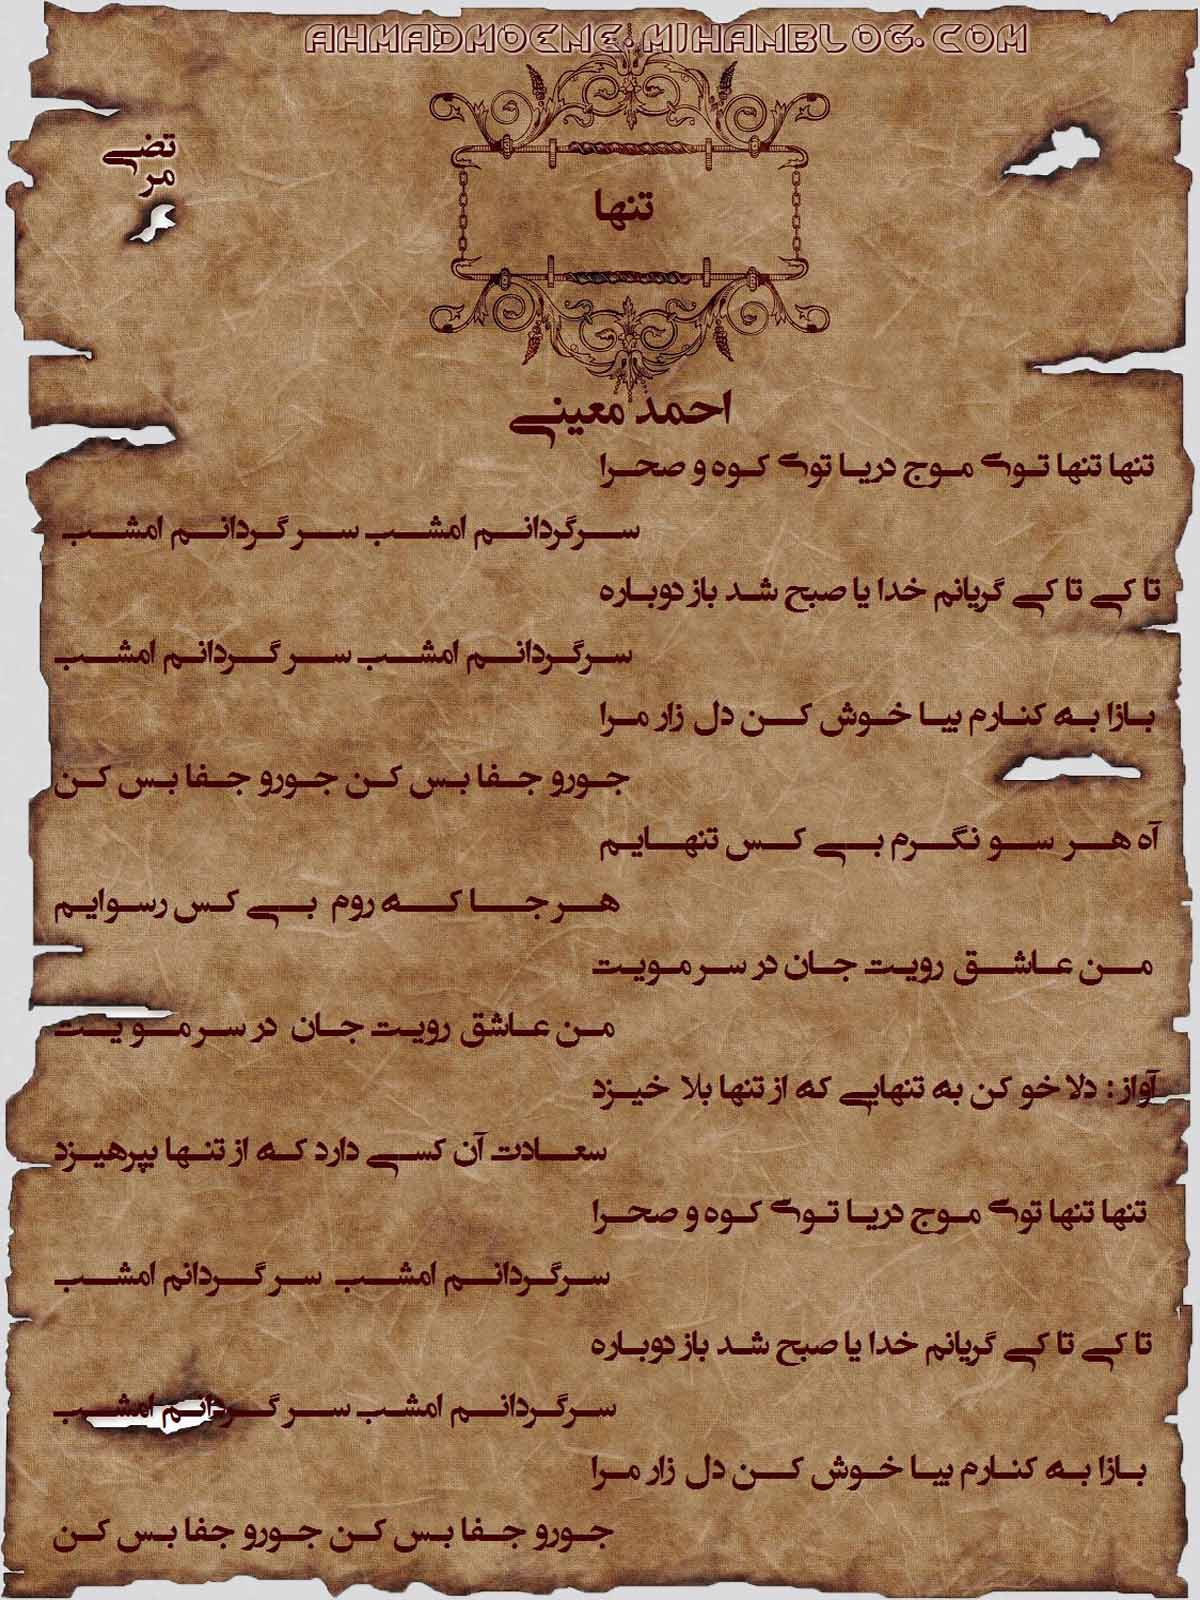 AHMADMOENE.MIHANBLOG.COM
مرتضی
تنها
احمد معینی
تنها تنها توی موج دریا توی کوه و صحرا
سرگردانم امشب سر گردانم امشب
تا کی تا کی گریانم خدا یا صبح شد باز دوباره
سرگردانم امشب سر گردانم امشب
بازا به کنارم بیا خوش کن دل زار مرا
جورو جفا بس کن جورو جفا بس کن
آه هر سو نگرم بی کس تنهایم
هر جا که روم بی کس رسوایم
من عاشق رویت جان در سر مویت
من عاشق رویت جان در سر مو یت
آواز : دلا خو کن به تنهایی که از تنها بلا خیزد
سعادت آن کسی دارد که از تنها بپرهیزد
تنها تنها توی موج دریا توی کوه و صحرا
سرگردانم امشب سر گردانم امشب
تا کی تا کی گریانم خدا یا صبح شد باز دوباره
سرگردانم امشب سر گردانم امشب
بازا به کنارم بیا خوش کن دل زار مرا
جورو جفا بس کن جورو جفا بس کن